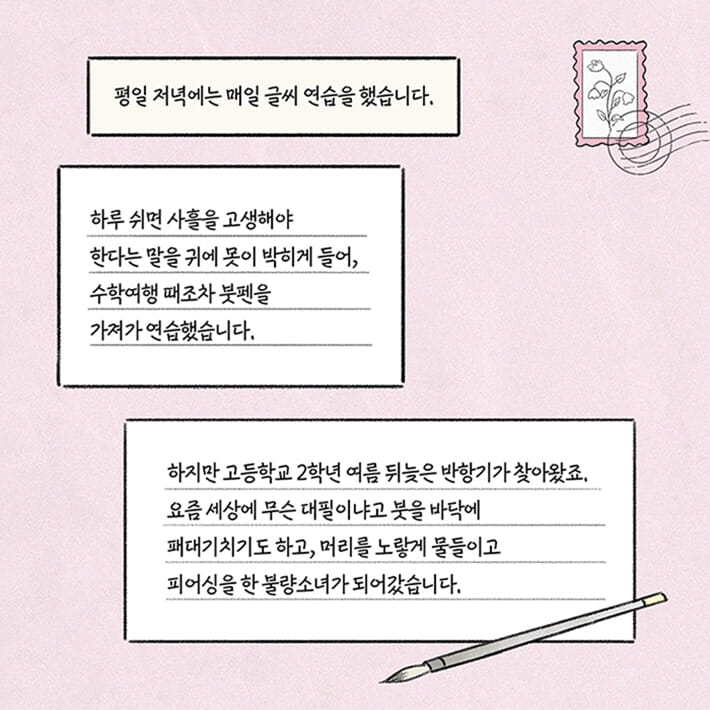 평일 저녁에는 매일 글씨 연습을 했습니다.
하루 쉬면 사흘을 고생해야
한다는 말을 귀에 못이 박히게 들어,
수학여행 때조차 붓펜을
가져가 연습했습니다.
하지만 고등학교 2학년 여름 뒤늦은 반항기가 찾아왔죠.
요즘 세상에 무슨 대필이냐고 붓을 바닥에
패대기치기도 하고, 머리를 노랗게 물들이고
피어싱을 한 불량소녀가 되어갔습니다.